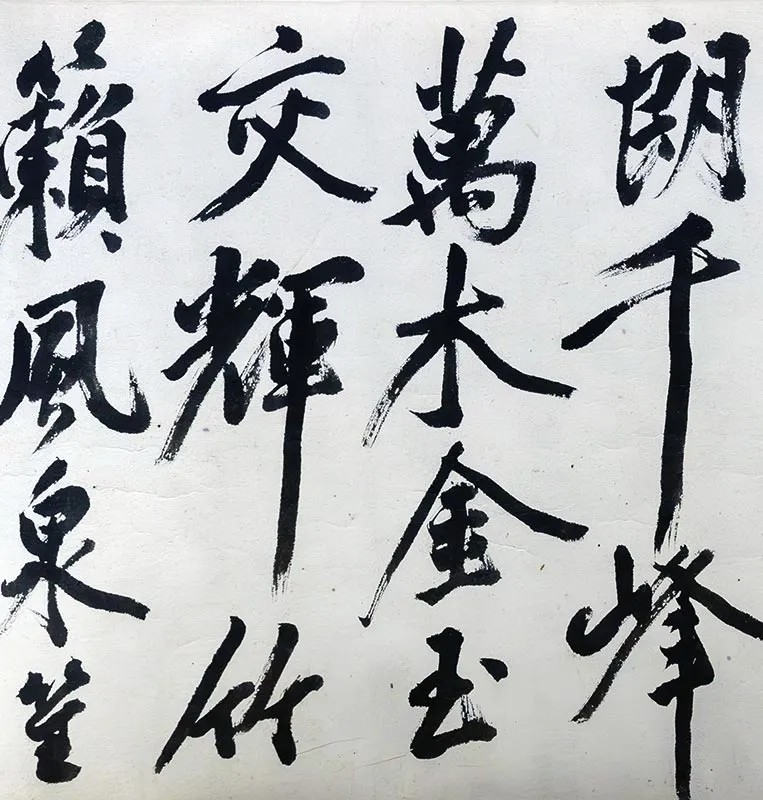 朗千峰
萬木金玉
交輝竹
籟風泉笙